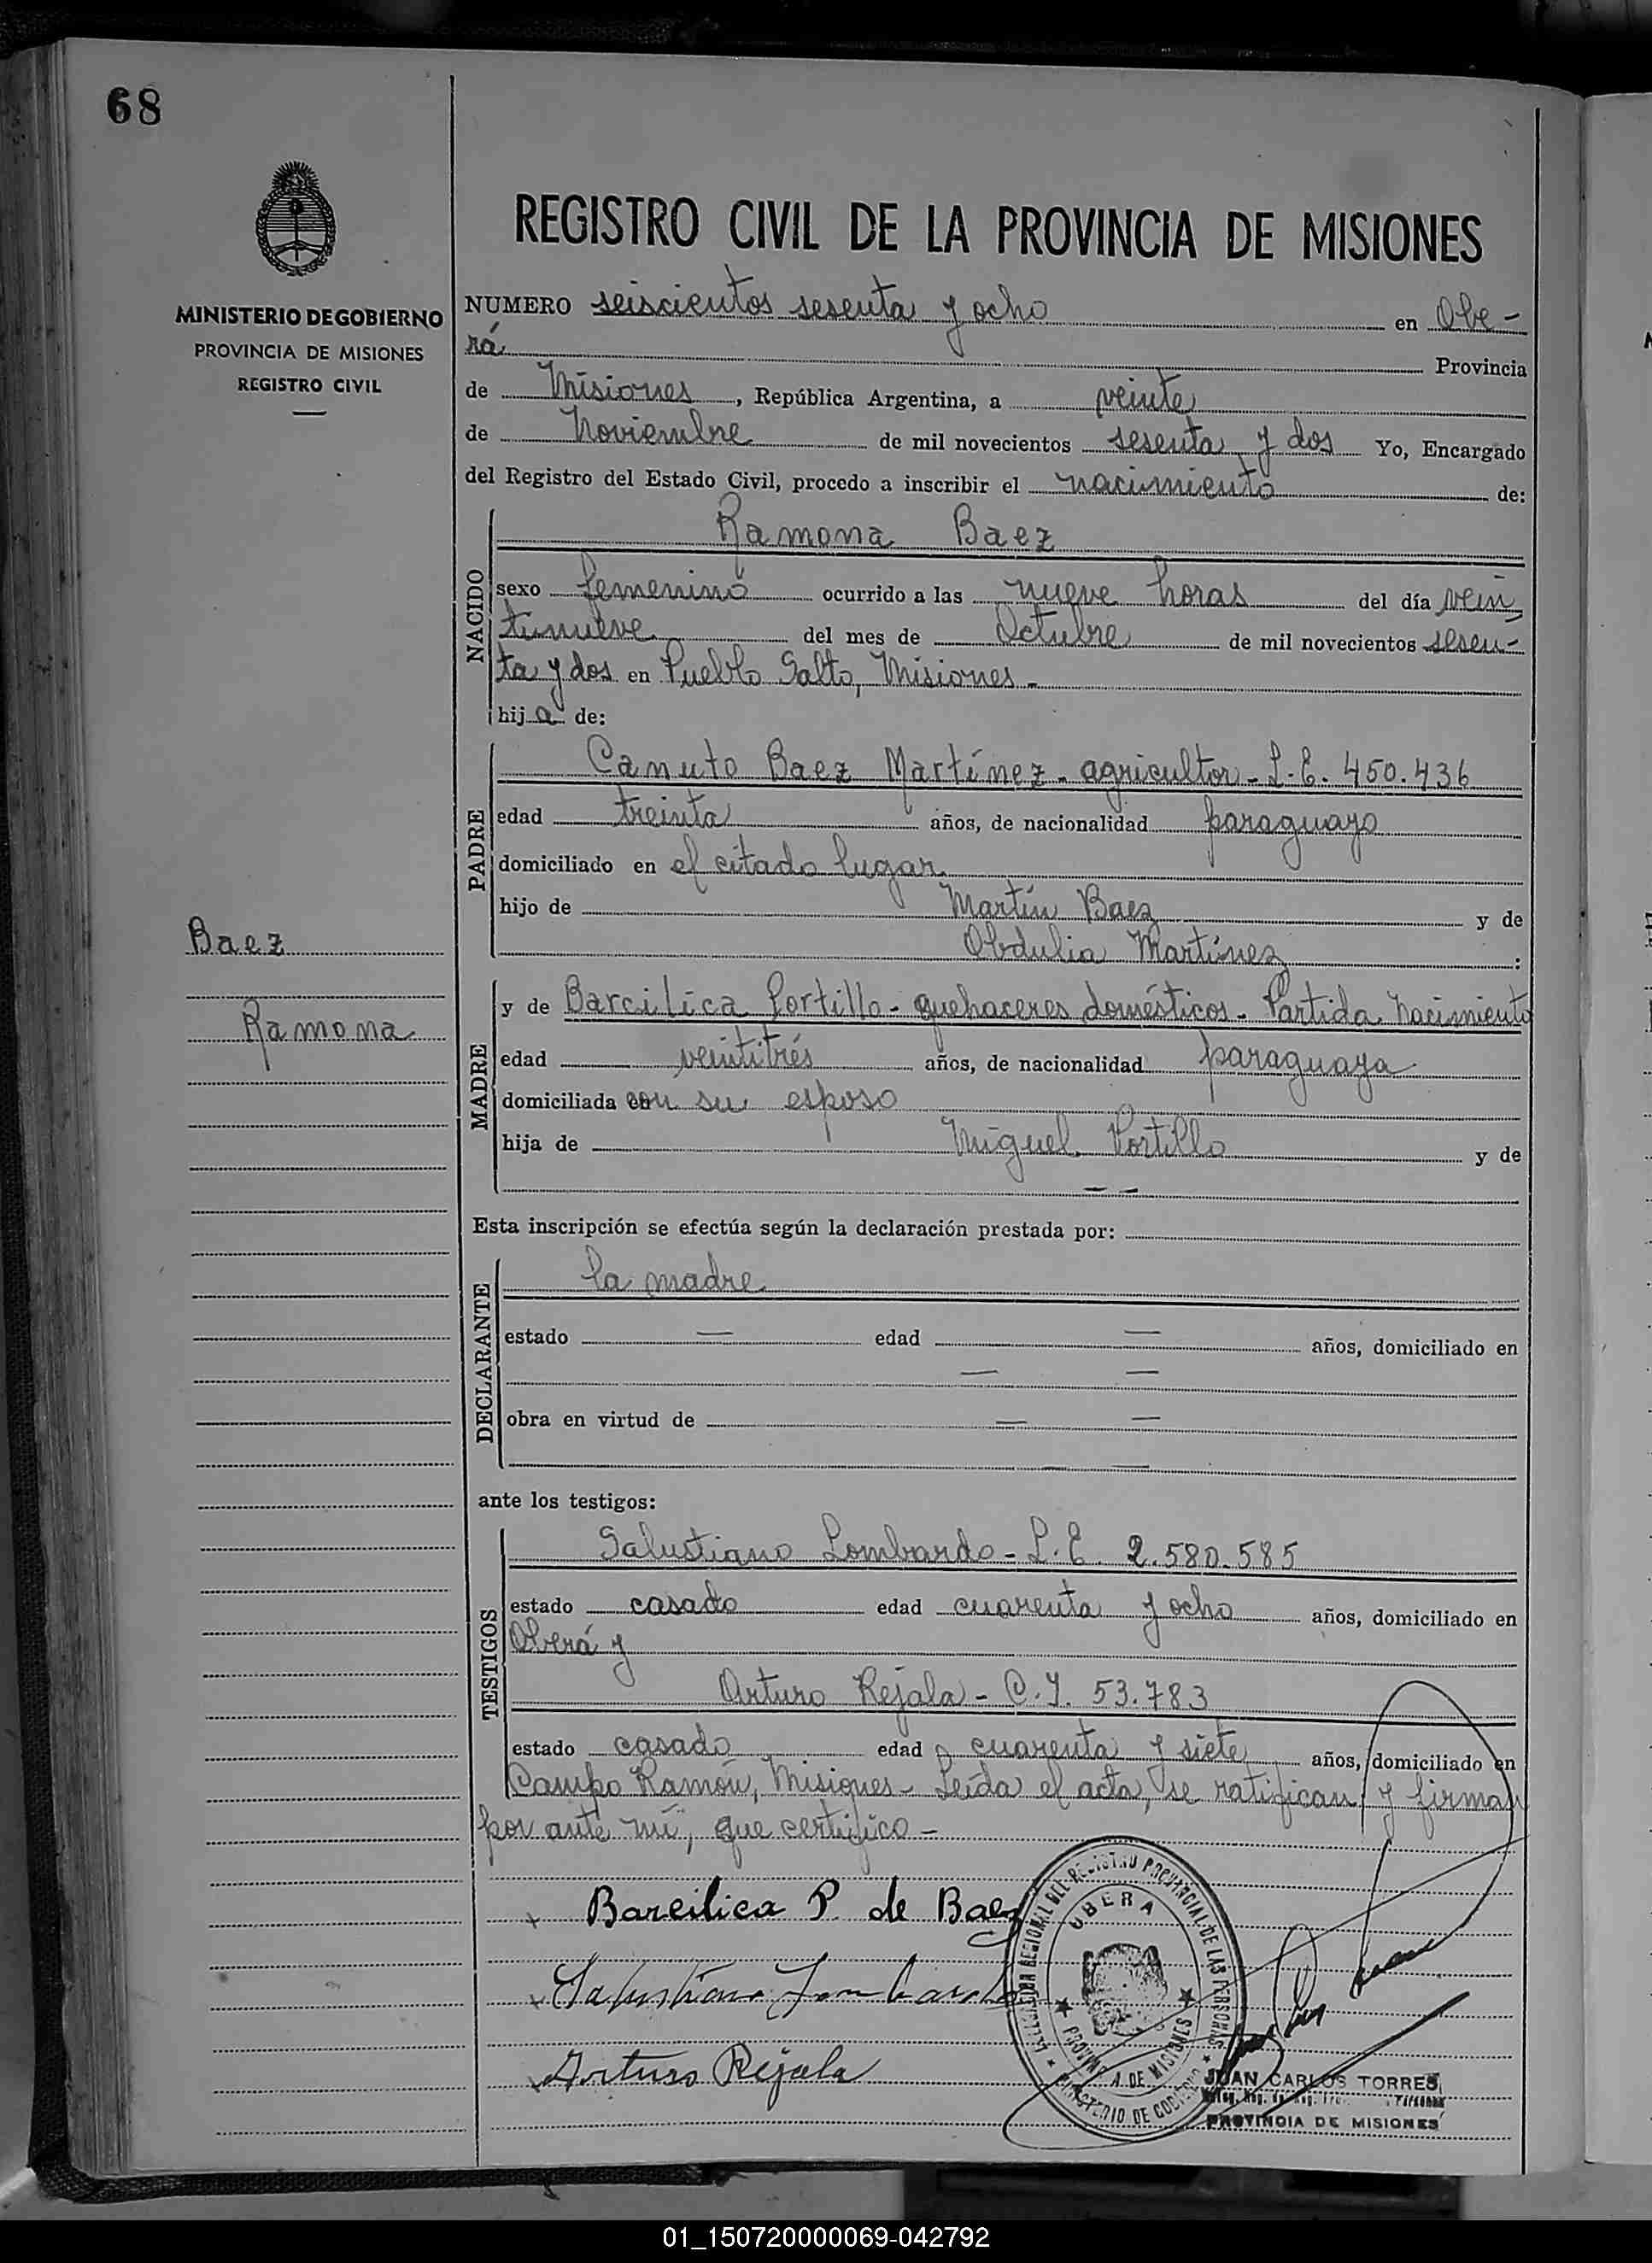 68
REGISTRO CIVIL DE LA PROVINCIA DE MISIONES
MINISTERIO DE GOBIERNO
PROVINCIA DE MISIONES
REGISTRO CIVIL
NUMERO seiscientos sesenta y ocho en Obe-
rá Provincia
de Misiones, República Argentina, a veinte
de Noviembre de mil novecientos sesenta y dos Yo, Encargado
del Registro del Estado Civil, procedo a inscribir el nacimiento de:
NACIDO
Ramona Baez
sexo femenino ocurrido a las nueve horas del día vein
tinueve del mes de Octubre de mil novecientos sesen-
ta y dos en Pueblo Salto, Misiones -
hija de:
PADRE
Canuto Baez Martínez - agricultor - L.E. 450.436
edad treinta años, de nacionalidad paraguayo
domiciliado en el citado lugar
hijo de Martín Baez y de
Obdulia Martínez :
Baez
Ramona
MADRE
y de Barcilica Portillo - quehaceres domésticos - Partida Nacimiento
edad veintitrés años, de nacionalidad paraguaya
domiciliada con su esposo
hija de Miguel Portillo y de
— —
Esta inscripción se efectúa según la declaración prestada por:
DECLARANTE
la madre
estado — edad — años, domiciliado en
— —
obra en virtud de — —
— —
ante los testigos:
TESTIGOS
Salustiano Lombardo - L.E. 2.580.585
estado casado edad cuarenta y ocho años, domiciliado en
Oberá y
Arturo Rejala - C.I. 53.783
estado casado edad cuarenta y siete años, domiciliado en
Campo Ramón, Misiones - Leída el acta, se ratifican y firman
por ante mí, que certifico -
Barcilica P. de Baez
Salustiano Lombardo
Arturo Rejala
OBERA
PROVINCIA DE MISIONES
JUAN CARLOS TORRES
PROVINCIA DE MISIONES
01_150720000069-042792